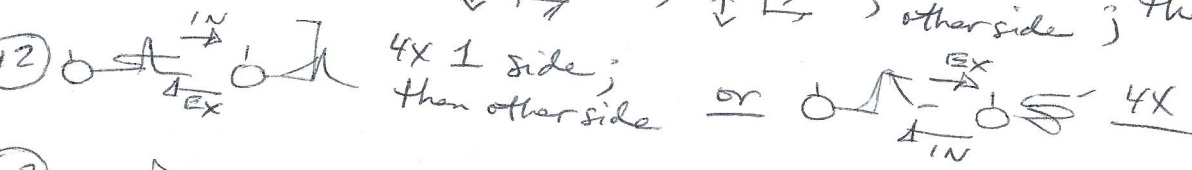 other side ; th
2 IN EX 4X 1 side ;
then other side or EX IN 4X